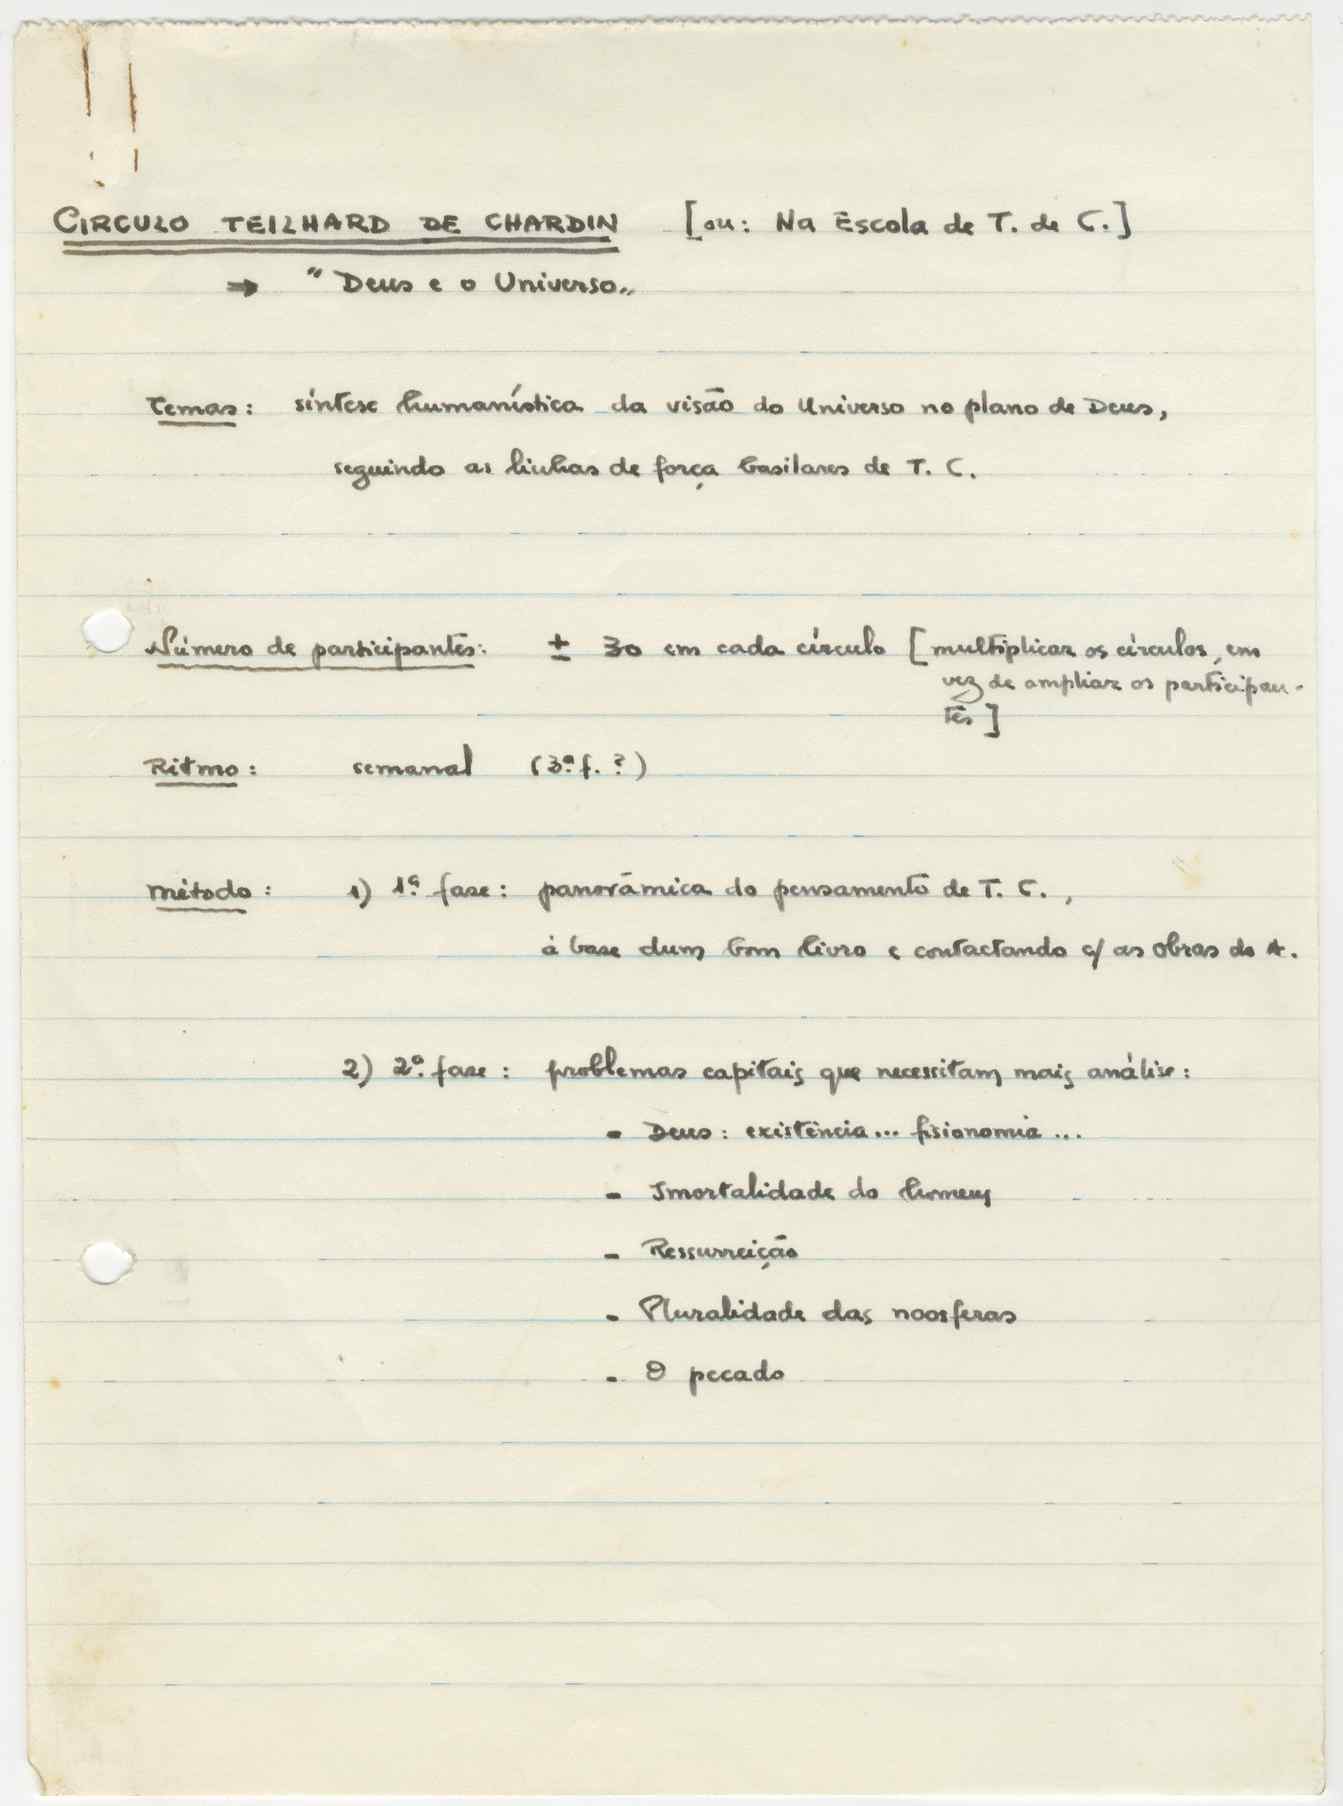 CIRCULO TEILHARD DE CHARDIN [ou: Na Escola de T. de C.]
→ "Deus e o Universo"
Temas: síntese humanística da visão do Universo no plano de Deus,
seguindo as linhas de força basilares de T. C.
Número de participantes: ± 30 em cada círculo [multiplicar os círculos, em
vez de ampliar os participan-
tes]
Ritmo: semanal (3ª f. ?)
Método: 1) 1ª fase: panorâmica do pensamento de T. C.,
à base dum bom livro e contactando c/ as obras do A.
2) 2ª fase: problemas capitais que necessitam mais análise:
- Deus: existência... fisionomia...
- Imortalidade do homem
- Ressurreição
- Pluralidade das noosferas
- O pecado